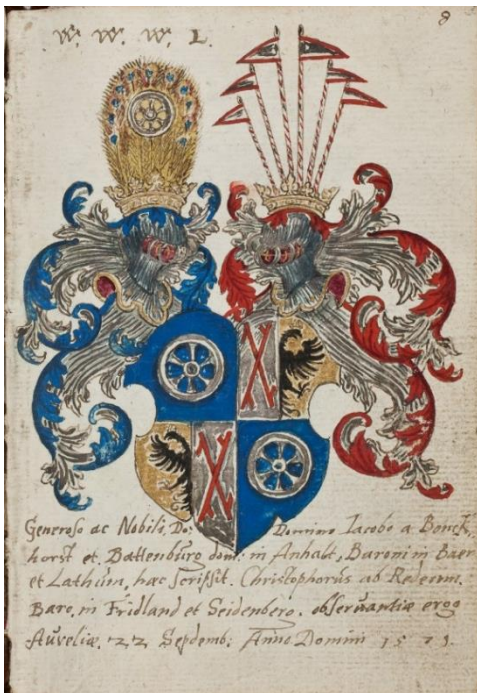 8
W. W. W. L.
Generoso ac Nobili, Do: Domino Iacobo a Bonck,
horst et Battenburg dom: in Anhalt, Baroni in Baer
et Lathum, hæc scripsit. Christophorus ab Redernn.
Baro, in Fridland et Seidenberg. observantiæ ergo
Aureliæ. 22 Septemb: Anno Domini 1571.